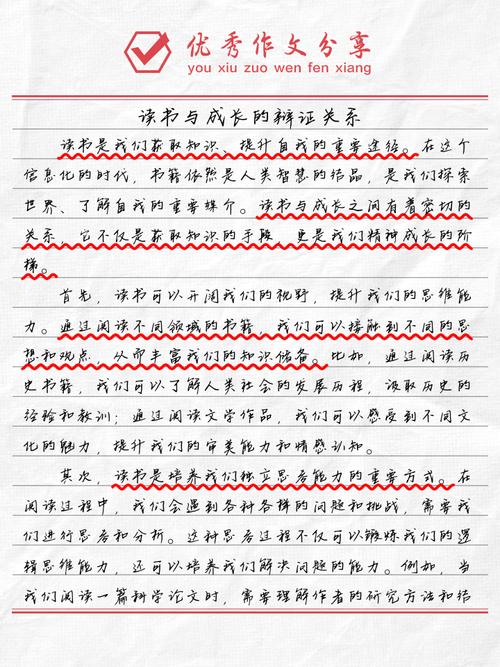 优秀作文分享
you xiu zuo wen fen xiang
读书与成长的辩证关系
读书是我们获取知识、提升自我的重要途径。在这个
信息化的时代，书籍依然是人类智慧的结晶，是我们探索
世界、了解自我的重要媒介。读书与成长之间有着密切的
关系，它不仅是获取知识的手段，更是我们精神成长的阶
梯。
首先，读书可以开阔我们的视野，提升我们的思维能
力。通过阅读不同领域的书籍，我们可以接触到不同的思
想和观点，从而丰富我们的知识储备。比如，通过阅读历
史书籍，我们可以了解人类社会的发展历程，汲取历史的
经验和教训；通过阅读文学作品，我们可以感受到不同文
化的魅力，提升我们的审美能力和情感认知。
其次，读书是培养我们独立思考能力的重要方式。在
阅读过程中，我们会遇到各种各样的问题和挑战，需要我
们进行思考和分析。这种思考过程不仅可以锻炼我们的逻
辑思维能力，还可以培养我们解决问题的能力。例如，当
我们阅读一篇科学论文时，需要理解作者的研究方法和结